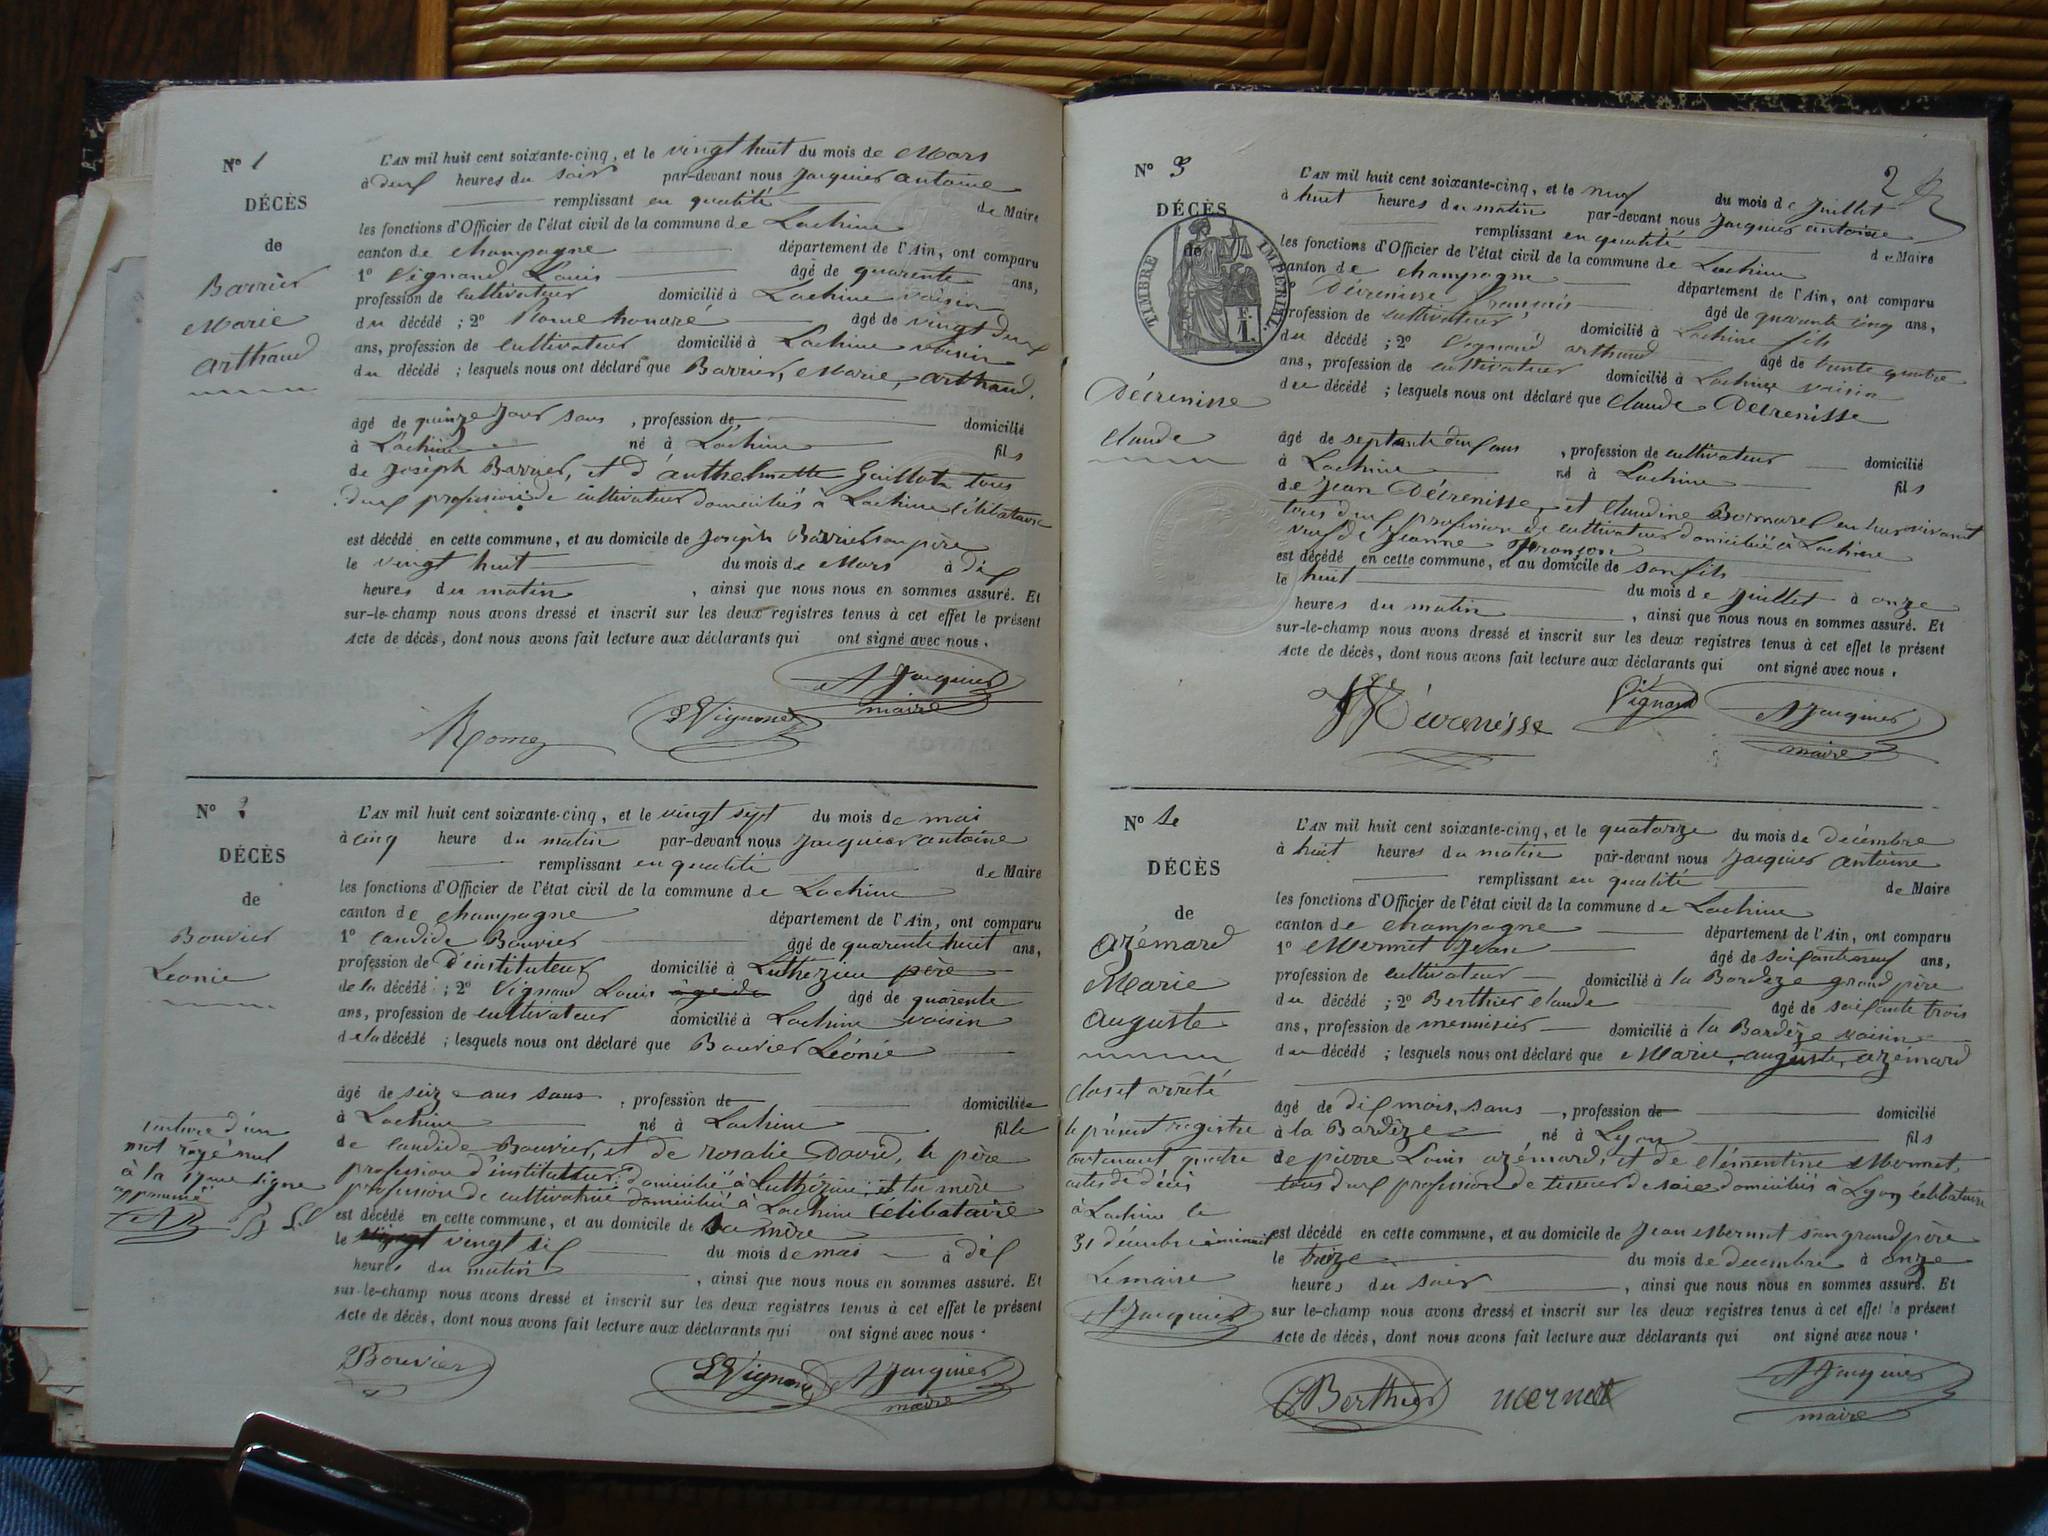 N° 1
DÉCÈS
de
Barrier
Marie
Arthaud
L'AN mil huit cent soixante-cinq, et le vingt huit du mois de Mars
à deux heures du soir par-devant nous Jacquier antoine
remplissant en qualité de Maire
les fonctions d'Officier de l'état civil de la commune de Lochieu
canton de champagne département de l'Ain, ont comparu
1° Vignand Louis âgé de quarente ans,
profession de cultivateur domicilié à Lochieu voisin
du décédé ; 2° Rome honoré âgé de vingt deux
ans, profession de cultivateur domicilié à Lochieu voisin
du décédé ; lesquels nous ont déclaré que Barrier, Marie, arthaud,
âgé de quinze jour sans , profession de domicilié
à Lochieu né à Lochieu fils
de Joséph Barrier, et d'anthelmette Guillot tous
deux profession de cultivateur domiciliés à Lochieu Célibataire
est décédé en cette commune, et au domicile de Joséph Barrier son père
le vingt huit du mois de Mars à dix
heures du matin , ainsi que nous nous en sommes assuré. Et
sur-le-champ nous avons dressé et inscrit sur les deux registres tenus à cet effet le présent
Acte de décès, dont nous avons fait lecture aux déclarants qui ont signé avec nous.
A Jacquier
maire
Rome
L Vignand
N° 2
DÉCÈS
de
Bouvier
Leonie
L'AN mil huit cent soixante-cinq, et le vingt sept du mois de mai
à cinq heure du matin par-devant nous Jacquier antoine
remplissant en qualité de Maire
les fonctions d'Officier de l'état civil de la commune de Lochieu
canton de champagne département de l'Ain, ont comparu
1° Candide Bouvier âgé de quarente huit ans,
profession de d'instituteur domicilié à Luthézieu père
de la décédé ; 2° Vignand Louis âgé de âgé de quarente
ans, profession de cultivateur domicilié à Lochieu voisin
de la décédé ; lesquels nous ont déclaré que Bouvier Léonie
âgé de seize ans sans , profession de domiciliée
à Lochieu né à Lochieu fille
de Candide Bouvier, et de rosalie David, le père
profession d'instituteur domicilié à Luthézieu, et la mère
profession de cultivatrice domiciliée à Lochieu Célibataire
est décédé en cette commune, et au domicile de sa mère
le vingt six du mois de mai à dix
heures du matin , ainsi que nous nous en sommes assuré. Et
sur-le-champ nous avons dressé et inscrit sur les deux registres tenus à cet effet le présent
Acte de décès, dont nous avons fait lecture aux déclarants qui ont signé avec nous.
d'un
mot rayé nul
à la ligne
Bouvier
L Vignand
A Jacquier
maire
2
N° 3
DÉCÈS
de
TIMBRE IMPÉRIAL
F.
1.
Décrenisse
claude
L'AN mil huit cent soixante-cinq, et le neuf du mois de Juillet
à huit heures du matin par-devant nous Jacquier antoine
remplissant en qualité de Maire
les fonctions d'Officier de l'état civil de la commune de Lochieu
canton de champagne département de l'Ain, ont comparu
Décrenisse françois âgé de quarante cinq ans,
profession de cultivateur domicilié à Lochieu fils
du décédé ; 2° Vignand arthaud âgé de trente quatre
ans, profession de cultivateur domicilié à Lochieu voisin
du décédé ; lesquels nous ont déclaré que Claude Décrenisse
âgé de septante deux ans , profession de cultivateur domicilié
à Lochieu né à Lochieu fils
de Jean Décrenisse, et claudine Bornarel en leur vivant
tous deux profession de cultivateur domiciliés à Lochieu
veuf de Jeanne
est décédé en cette commune, et au domicile de son fils
le huit du mois de Juillet à onze
heures du matin , ainsi que nous nous en sommes assuré. Et
sur-le-champ nous avons dressé et inscrit sur les deux registres tenus à cet effet le présent
Acte de décès, dont nous avons fait lecture aux déclarants qui ont signé avec nous.
Décrenisse
Vignand
A Jacquier
maire
N° 4
DÉCÈS
de
azémard
Marie
auguste
L'AN mil huit cent soixante-cinq, et le quatorze du mois de décembre
à huit heures du matin par-devant nous Jacquier antoine
remplissant en qualité de Maire
les fonctions d'Officier de l'état civil de la commune de Lochieu
canton de champagne département de l'Ain, ont comparu
1° Mermet Jean âgé de soixante neuf ans,
profession de cultivateur domicilié à la Bardèze grand père
du décédé ; 2° Berthier claude âgé de soixante trois
ans, profession de menuisier domicilié à la Bardèze voisin
du décédé ; lesquels nous ont déclaré que Marie, auguste, azémard
âgé de dix mois, sans , profession de domicilié
à la Bardèze né à Lyon fils
de pierre Louis azémard, et de clémentine Mermet,
tous deux profession de tisseur de soie domiciliés à Lyon célibataire
est décédé en cette commune, et au domicile de Jean Mermet son grand père
le treize du mois de decembre à onze
heures du soir , ainsi que nous nous en sommes assuré. Et
sur le-champ nous avons dressé et inscrit sur les deux registres tenus à cet effet le présent
Acte de décès, dont nous avons fait lecture aux déclarants qui ont signé avec nous.
clos et arrêté
le présent registre
contenant quatre
actes de décès
à Lochieu le
31 décembre à minuit
Le maire
A Jacquier
C Berthier
mermet
A Jacquier
maire